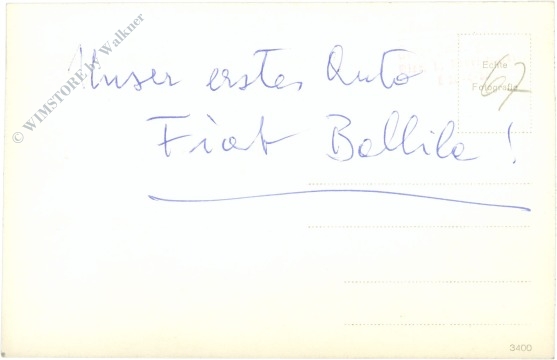 Unser erstes Auto
Fiat Ballila!
Echte
Fotografie
67
3400
© WIMSTORE by Walkner